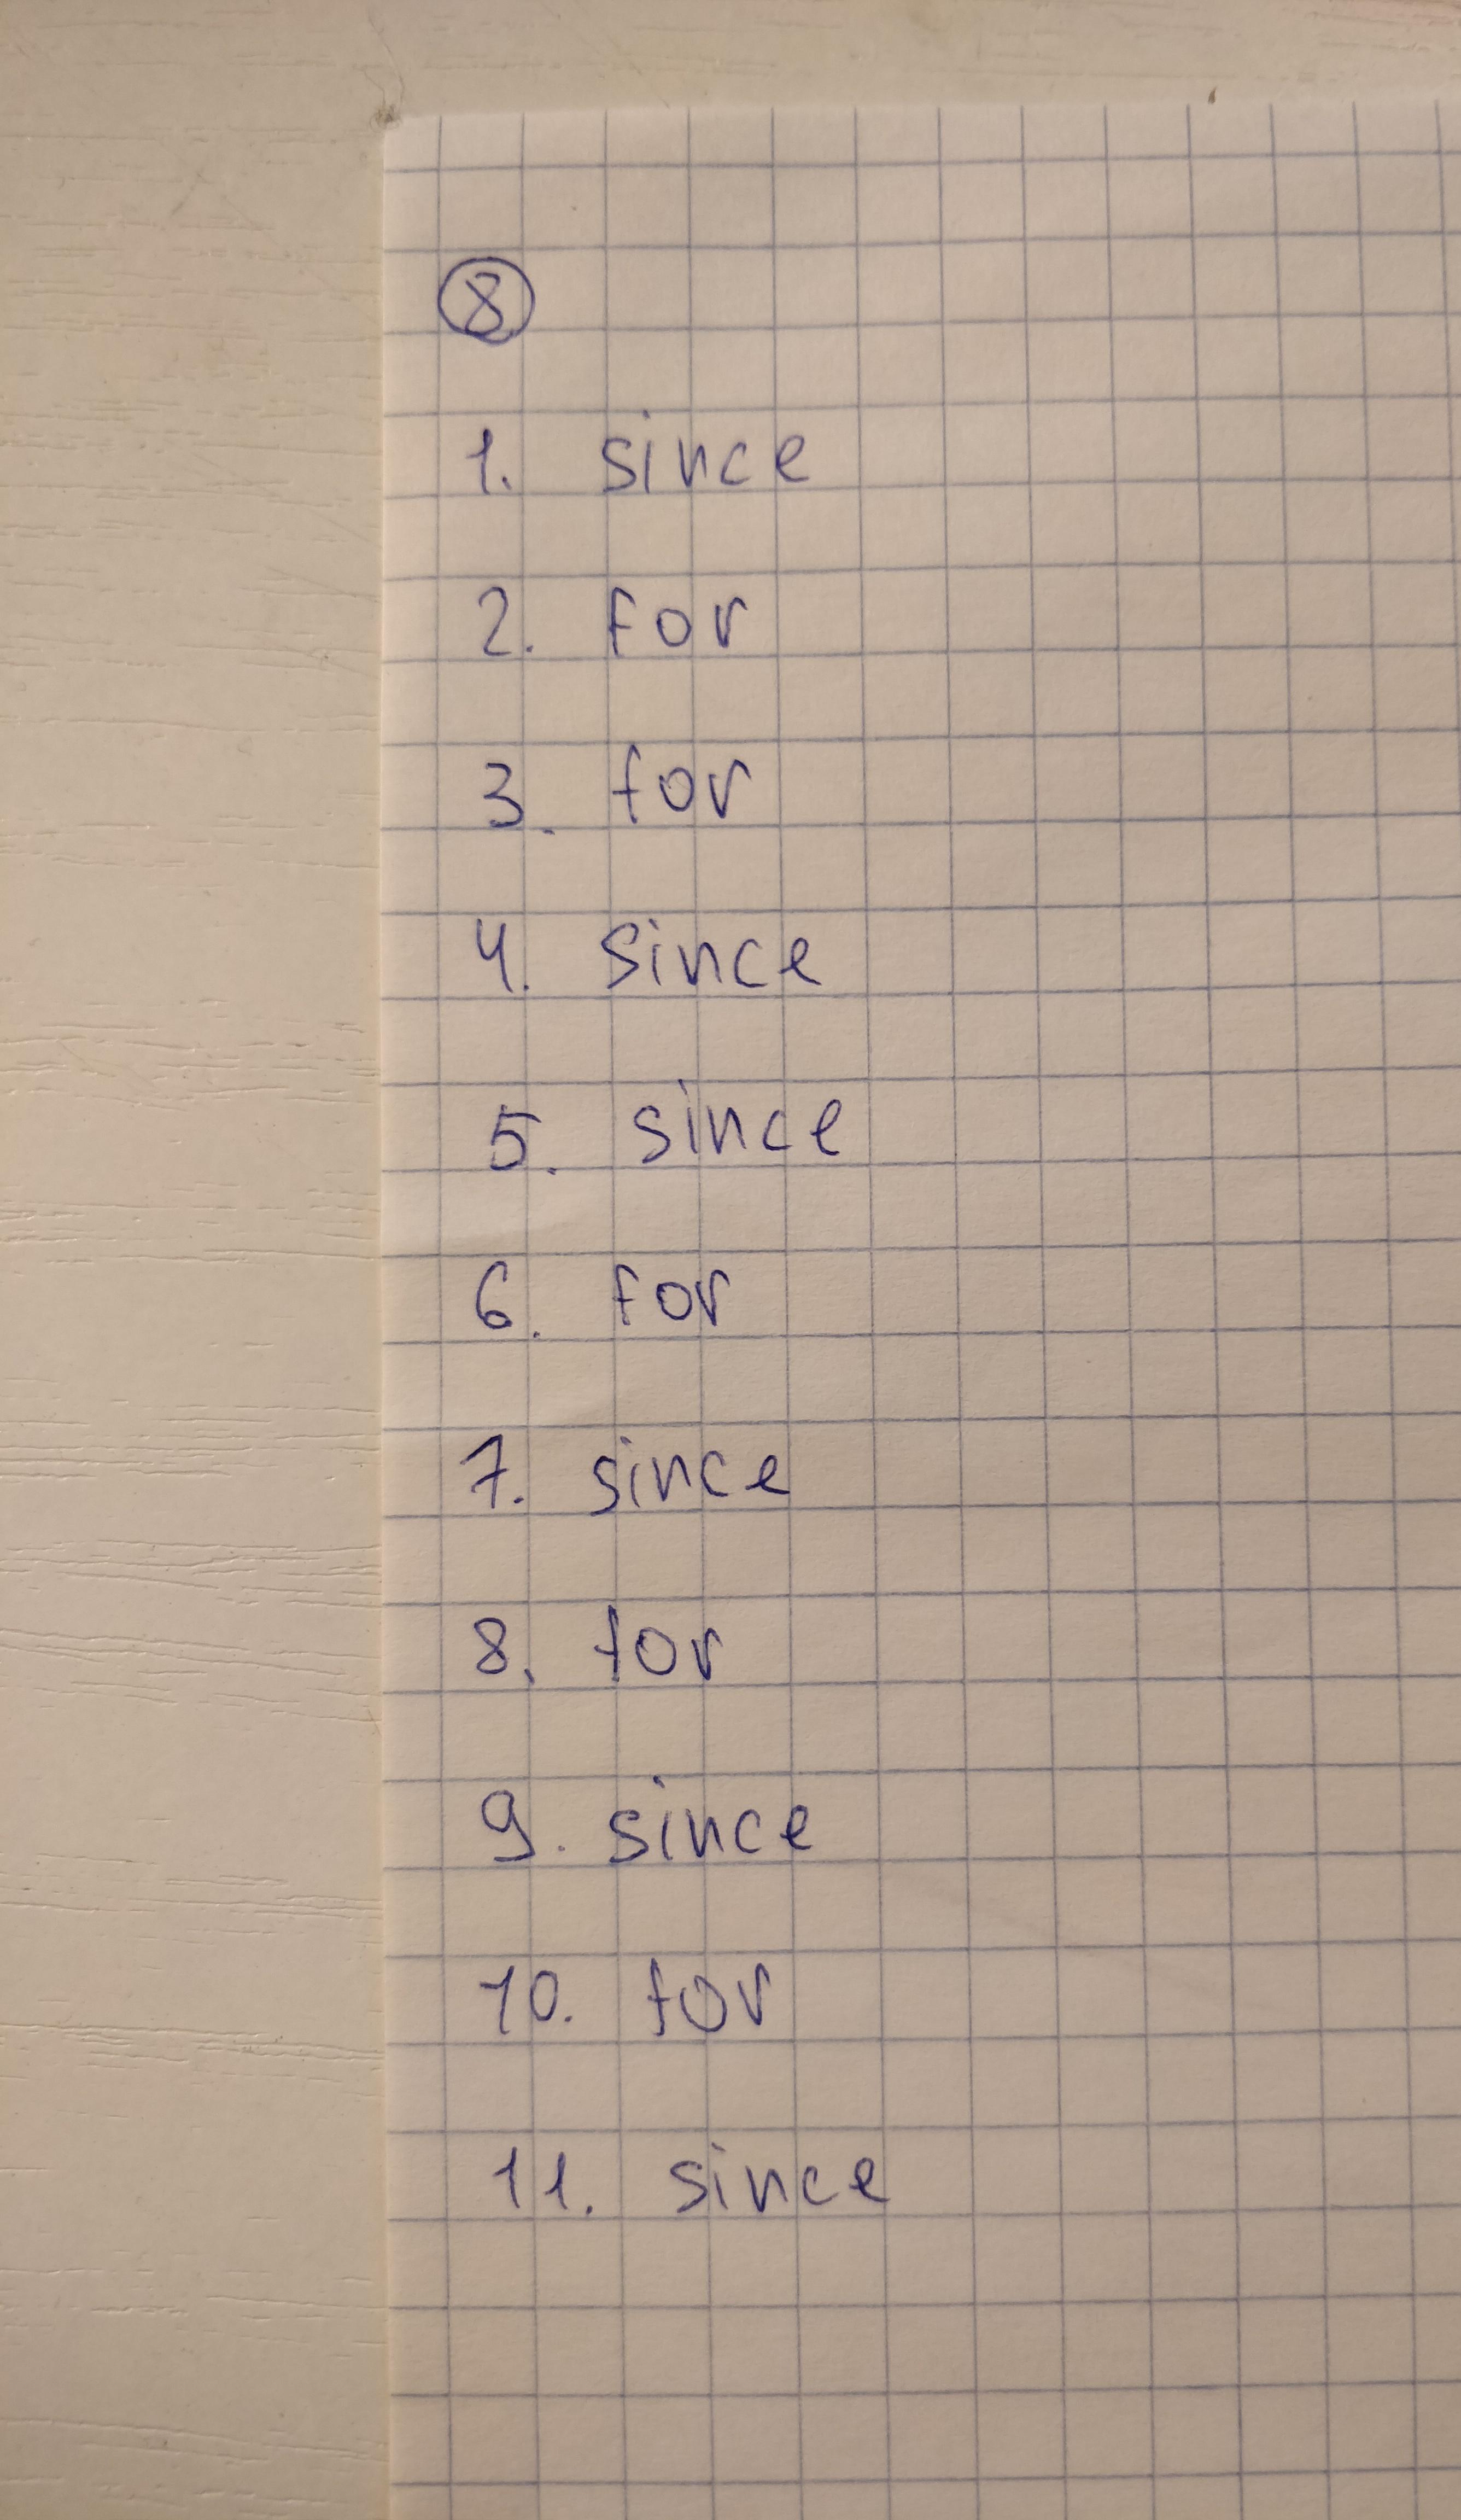 8
1. since
2. for
3. for
4. since
5. since
6. for
7. since
8. for
9. since
10. for
11. since